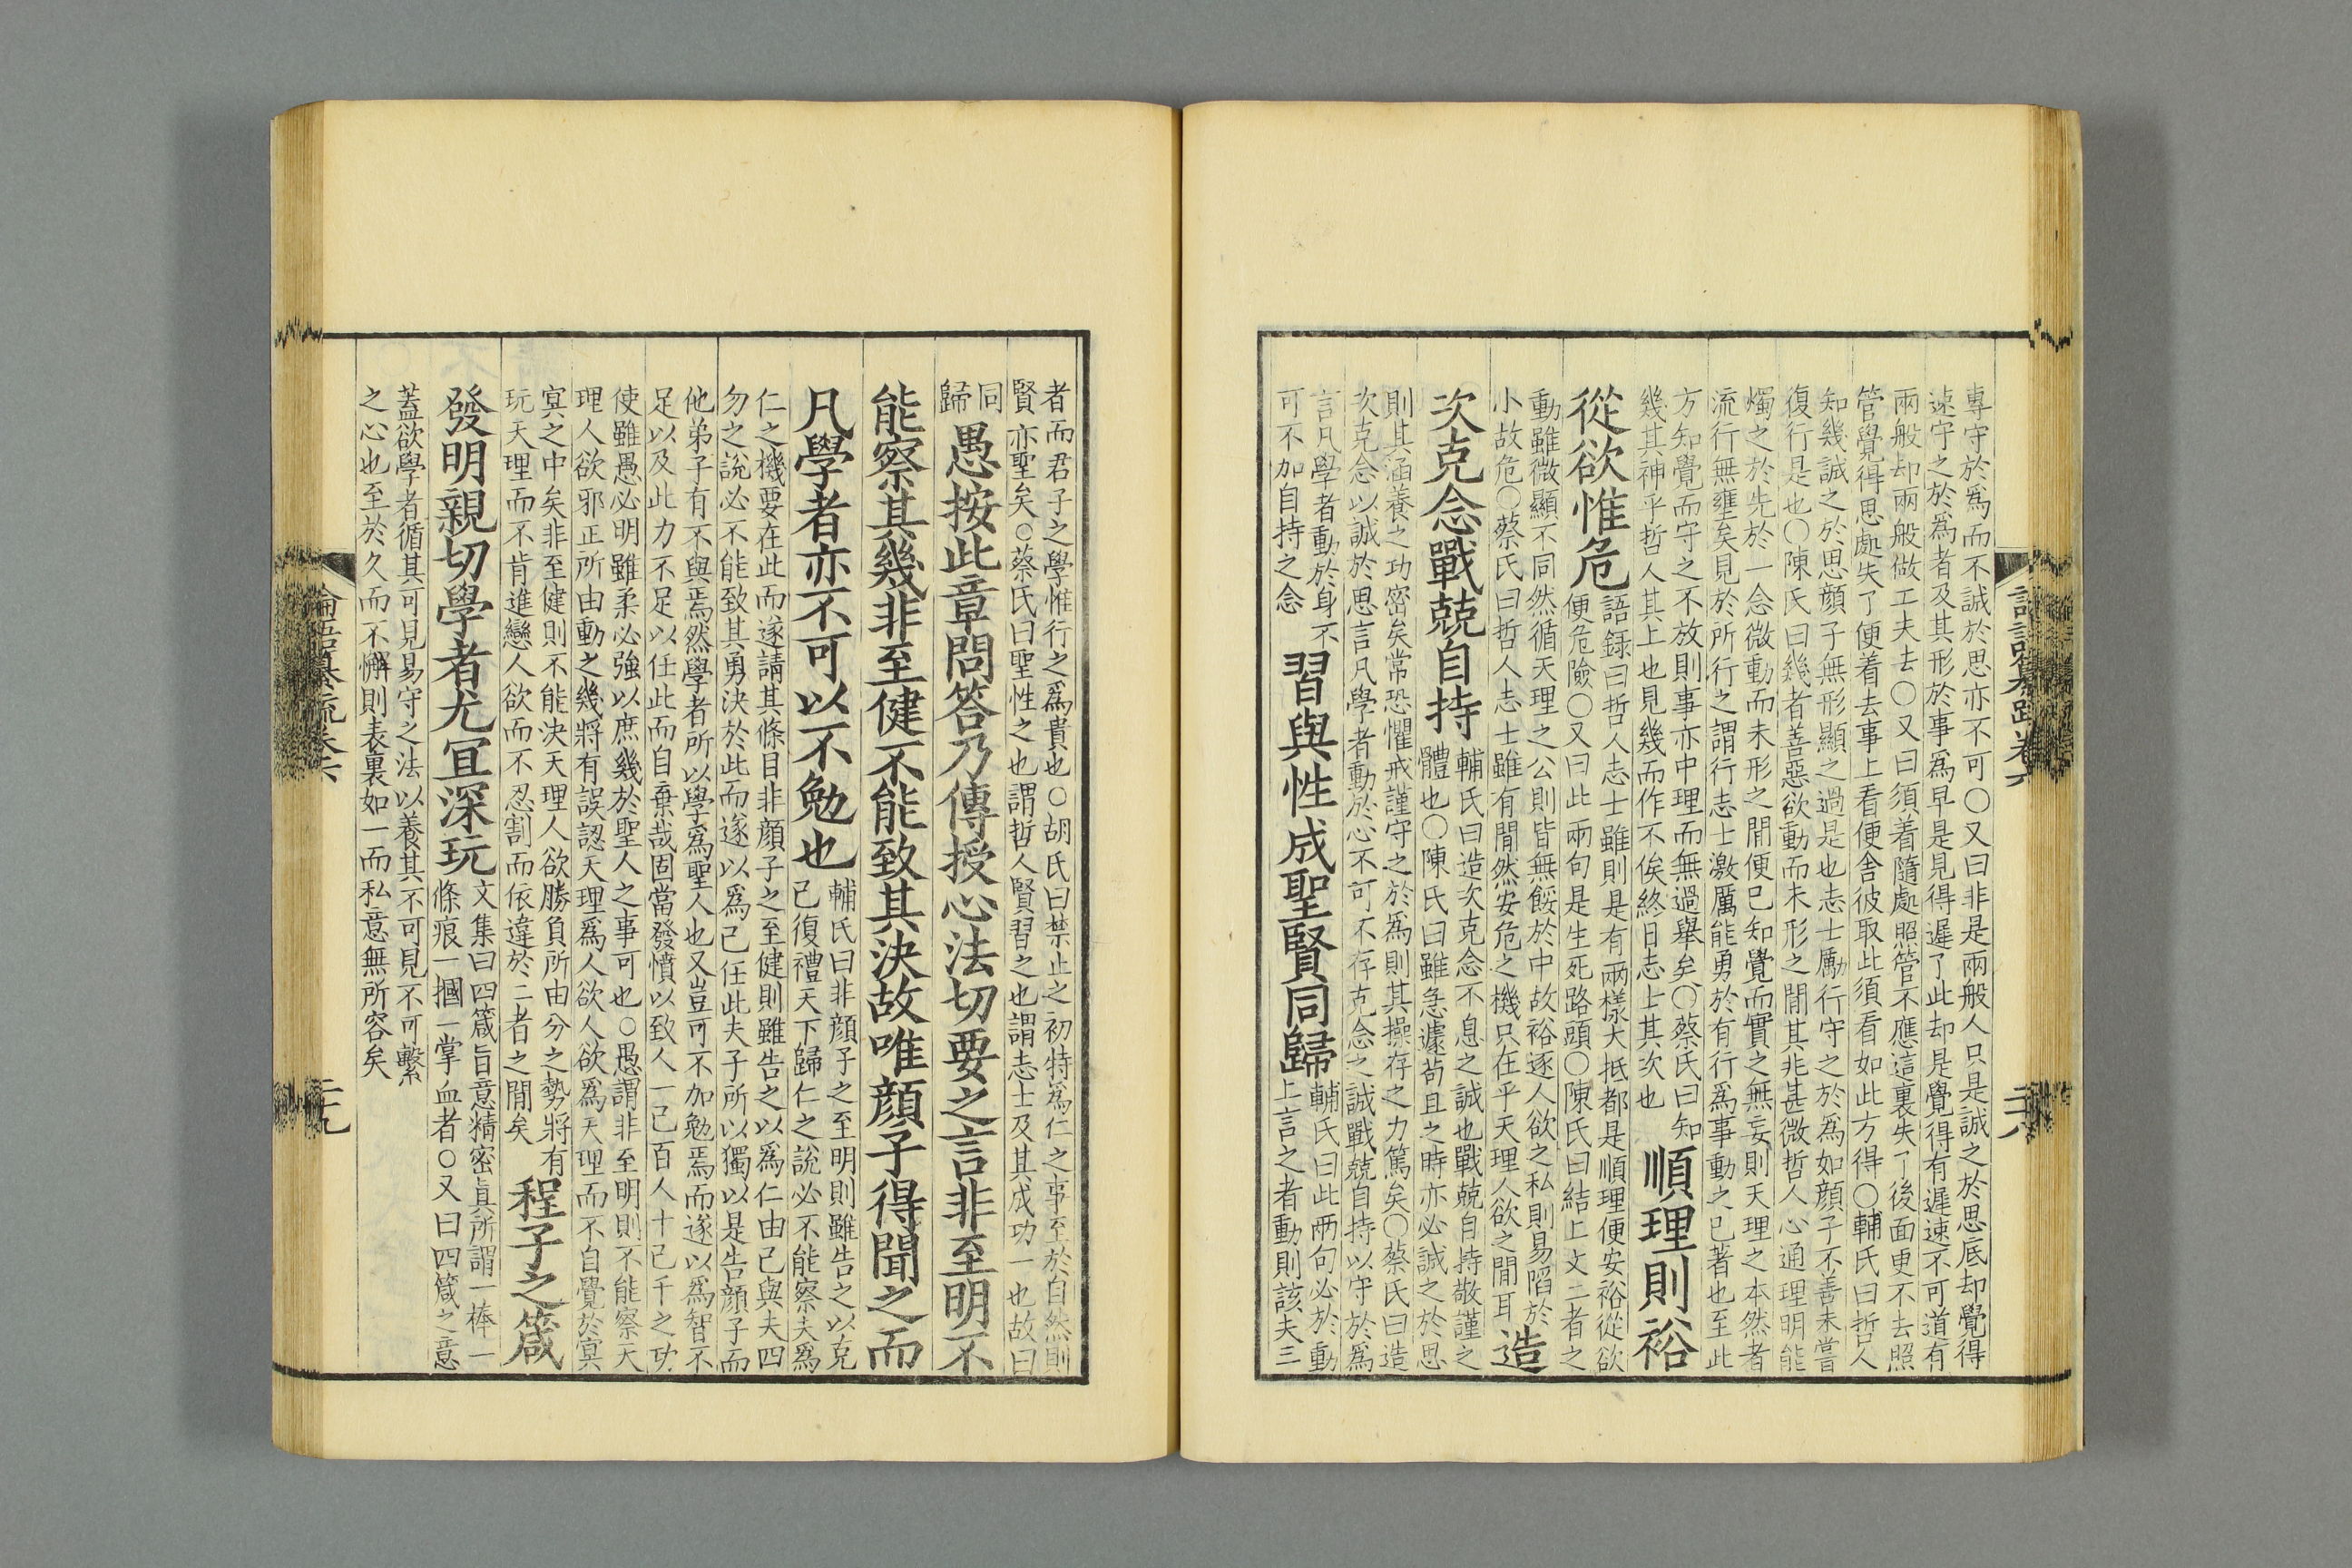 專守於爲而不誠於思亦不可○又曰非是兩般人只是誠之於思底却覺得
速守之於爲者及其形於事爲早是見得遲了此却是覺得有遲速不可道有
兩般却兩般做工夫去○又曰須着隨處照管不應這裏失了後面更不去照
管覺得思處失了便着去事上看便舍彼取此須看如此方得○輔氏曰哲人
知幾誠之於思顔子無形顯之過是也志士勵行守之於爲如顔子不善未嘗
復行是也○陳氏曰幾者善惡欲動而未形之閒其兆甚微哲人心通理明能
燭之於先於一念微動而未形之閒便已知覺而實之無妄則天理之本然者
流行無壅矣見於所行之謂行志士激厲能勇於有行爲事動之已著也至此
方知覺而守之不放則事亦中理而無過舉矣○蔡氏曰知
幾其神乎哲人其上也見幾而作不俟終日志士其次也
順理則裕
從欲惟危
語錄曰哲人志士雖則是有兩樣大抵都是順理便安裕從欲
便危險○又曰此兩句是生死路頭○陳氏曰結上文二者之
動雖微顯不同然循天理之公則皆無餒於中故裕逐人欲之私則易陷於
小故危○蔡氏曰哲人志士雖有閒然安危之機只在乎天理人欲之閒耳
造
次克念戰兢自持
輔氏曰造次克念不息之誠也戰兢自持敬謹之
體也○陳氏曰雖急遽苟且之時亦必誠之於思
則其涵養之功密矣常恐懼戒謹守之於爲則其操存之力篤矣○蔡氏曰造
次克念以誠於思言凡學者動於心不可不存克念之誠戰兢自持以守於爲
言凡學者動於身不
可不加自持之念
習與性成聖賢同歸
輔氏曰此兩句必於動
上言之者動則該夫三
論語纂疏卷六
二十八
者而君子之學惟行之爲貴也○胡氏曰禁止之初特爲仁之事至於自然則
賢亦聖矣○蔡氏曰聖性之也謂哲人賢習之也謂志士及其成功一也故曰
同
歸
愚按此章問答乃傳授心法切要之言非至明不
能察其幾非至健不能致其決故唯顔子得聞之而
凡學者亦不可以不勉也
輔氏曰非顔子之至明則雖告之以克
己復禮天下歸仁之說必不能察夫爲
仁之機要在此而遂請其條目非顔子之至健則雖告之以爲仁由己與夫四
勿之說必不能致其勇決於此而遂以爲己任此夫子所以獨以是告顔子而
他弟子有不與焉然學者所以學爲聖人也又豈可不加勉焉而遂以爲智不
足以及此力不足以任此而自棄哉固當發憤以致人一己百人十己千之功
使雖愚必明雖柔必強以庶幾於聖人之事可也○愚謂非至明則不能察天
理人欲邪正所由動之幾將有誤認天理爲人欲人欲爲天理而不自覺於冥
冥之中矣非至健則不能決天理人欲勝負所由分之勢將有
玩天理而不肯進戀人欲而不忍割而依違於二者之閒矣
程子之箴
發明親切學者尤宜深玩
文集曰四箴旨意精密眞所謂一棒一
條痕一摑一掌血者○又曰四箴之意
蓋欲學者循其可見易守之法以養其不可見不可繫
之心也至於久而不懈則表裏如一而私意無所容矣
論語纂疏卷六
二十九